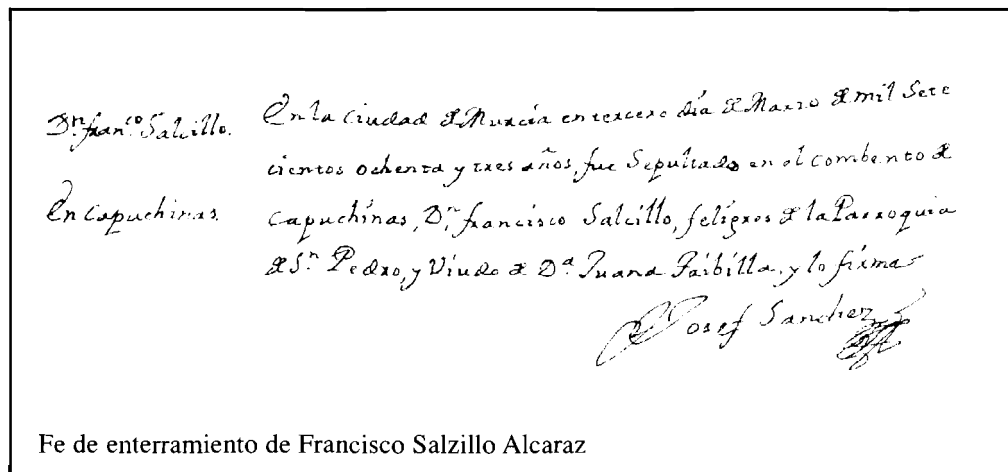 Dn. franco. Salcillo.
En Capuchinas.
En la Ciudad de Murcia en tercero dia de Marzo de mil Sete
cientos ochenta y tres años, fue Sepultado en el Combento de
Capuchinas, Dn. francisco Salcillo, feligres de la Parroquia
de Sn. Pedro, y Viudo de Da. Juana Taibilla, y lo firma
Josef Sanchez
Fe de enterramiento de Francisco Salzillo Alcaraz